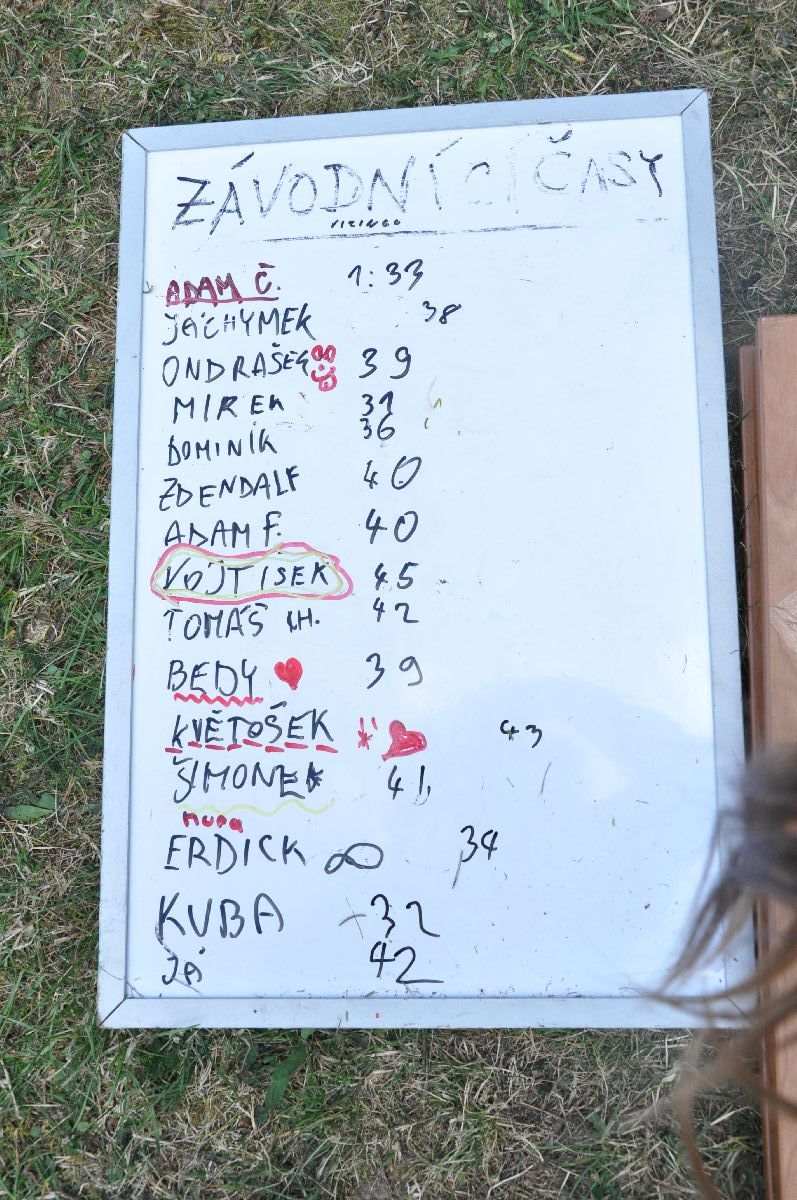 ZÁVODNÍCÍ ČASY
ADAM Č. 1:33
JÁCHYMEK 38
ONDRAŠEK 39
MIREK 31
DOMINIK 36
ZDENDALF 40
ADAM F. 40
VOJTISEK 45
TOMÁŠ CH. 42
BEDY 39
KVĚTOŠEK 43
ŠIMONEK 41
MUDA
ERDICK ∞ 34
KUBA 32
JÁ 42